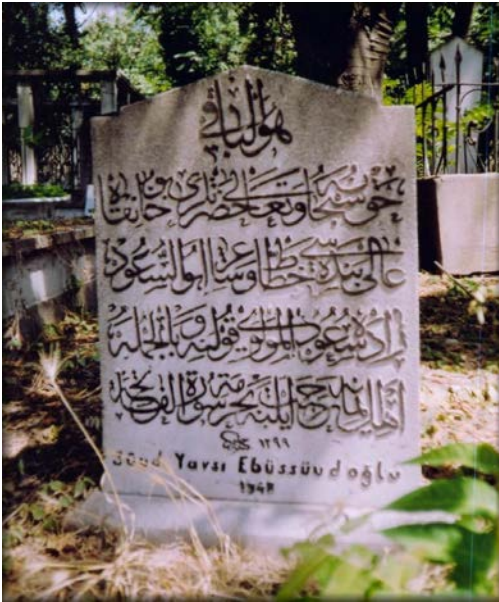 هو الباقی
حق سبحانه وتعالی حضرتلری خانقاه
عالی بنده سی خطاط و شاعر ابو السعود
زاده سعود المولوی قولنه و بالجمله
اهل ایمانه رحمت ایلیه بحرمة سورة الفاتحه
١٢٩٩
Süud Yavsı Ebüssüudoğlu
1948